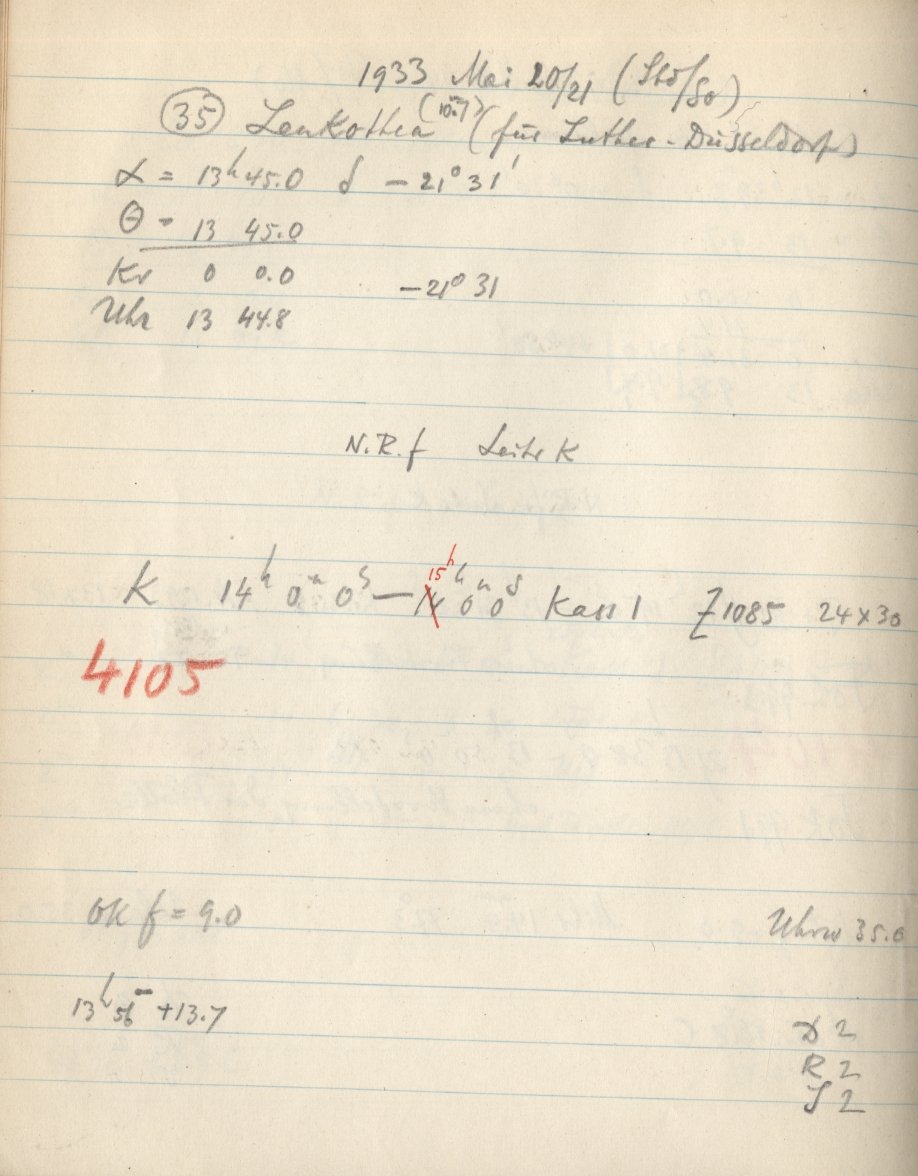 1933 Mai 20/21 (Sbd/So)
(35) Leukothea (10.7) (für Luther-Düsseldorf)
α = 13h 45.0 δ −21° 31'
θ = 13 45.0
Kr 0 0.0 −21° 31
Uhr 13 44.8
N.R.f Leihe K
K 14h 0m 0s — 14 15h h 0m 0s Kass 1 Z 1085 24x30
4105
OK f = 9.0 Uhrw 35.0
13h 56m +13.7
D 2
R 2
S 2